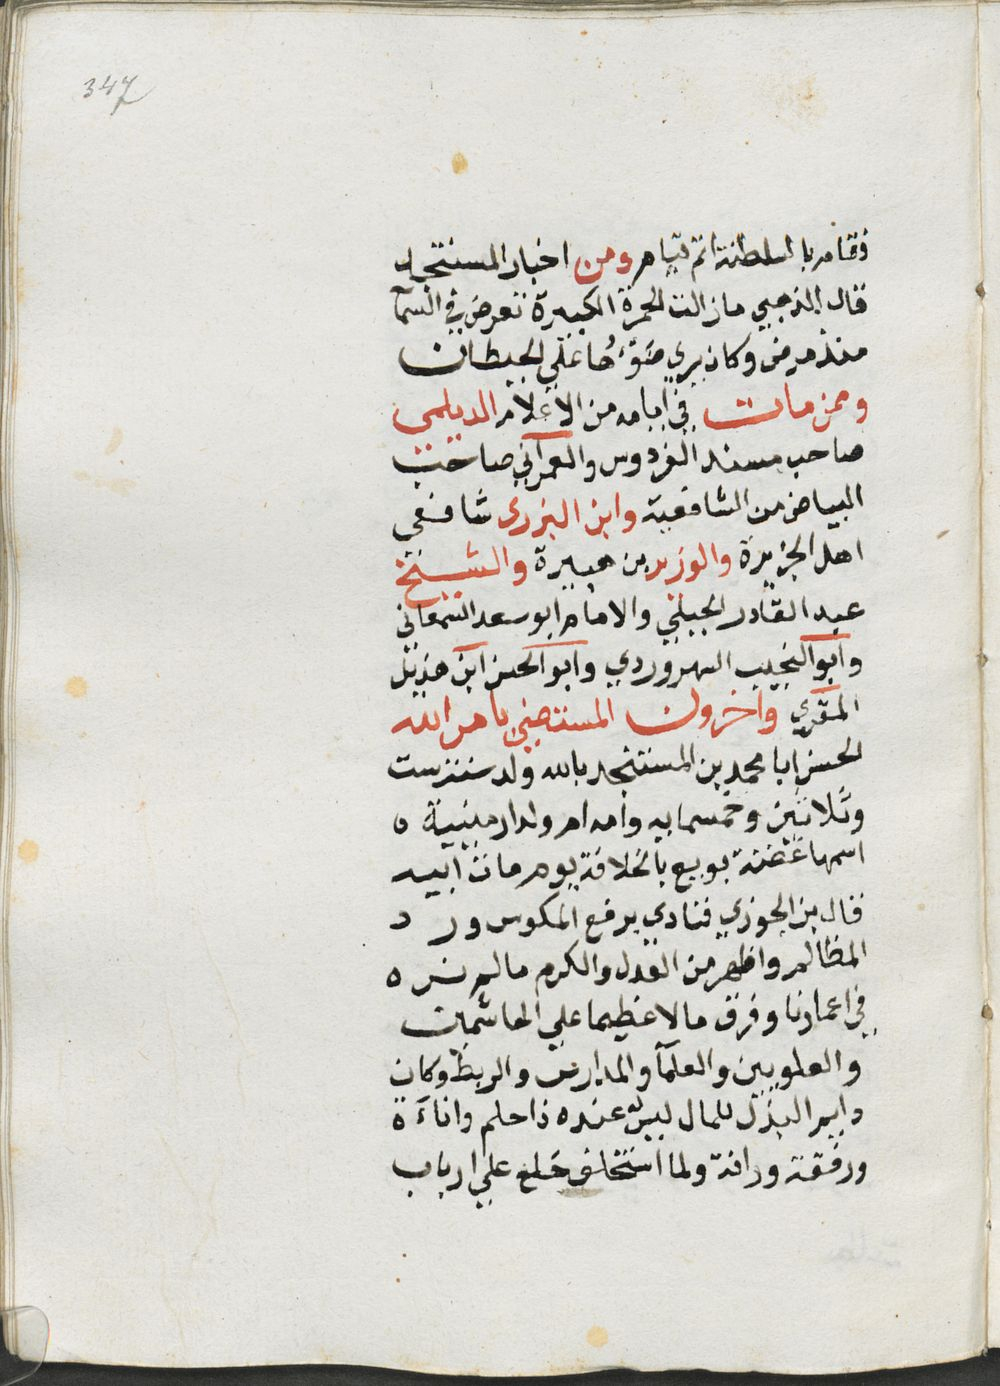 347
فقام بالسلطنة اتم قيام ومن اخبار المستنجد
قال الذهبي مازالت الحمرة الكبيرة تعرض في السمآ
منذ مرض وكان يري ضوءها علي الحيطان
وممن مات في ايامه من الاعلام الديلمي
صاحب مسند الفردوس والعمراني صاحب
البياض من الشافعية وابن البزري شافعي
اهل الجزيرة والوزير بن هبيرة والشيخ
عبد القادر الجيلي والامام ابو سعد السمعاني
وابو النجيب السهروردي وابو الحسن ابن هذيل
المقري واخرون المستضي بامر الله
الحسن ابا محمد بن المستنجد بالله ولد سنة ست
وثلاثين وخمسمايه وامه ام ولد ارمينية ه
اسمها غضة بويع بالخلافة يوم مات ابيه
قال بن الجوزي فنادي برفع المكوس ورد
المظالم واظهر من العدل والكرم مالم نره
في اعمارنا وفرق مالا عظيما علي الهاشمين
والعلويين والعلمآ والمدارس والربط وكان
دايم البذل للمال ليس عنده ذا حلم واناءة
ورفقة ورافة ولما استخلف خلع علي ارباب